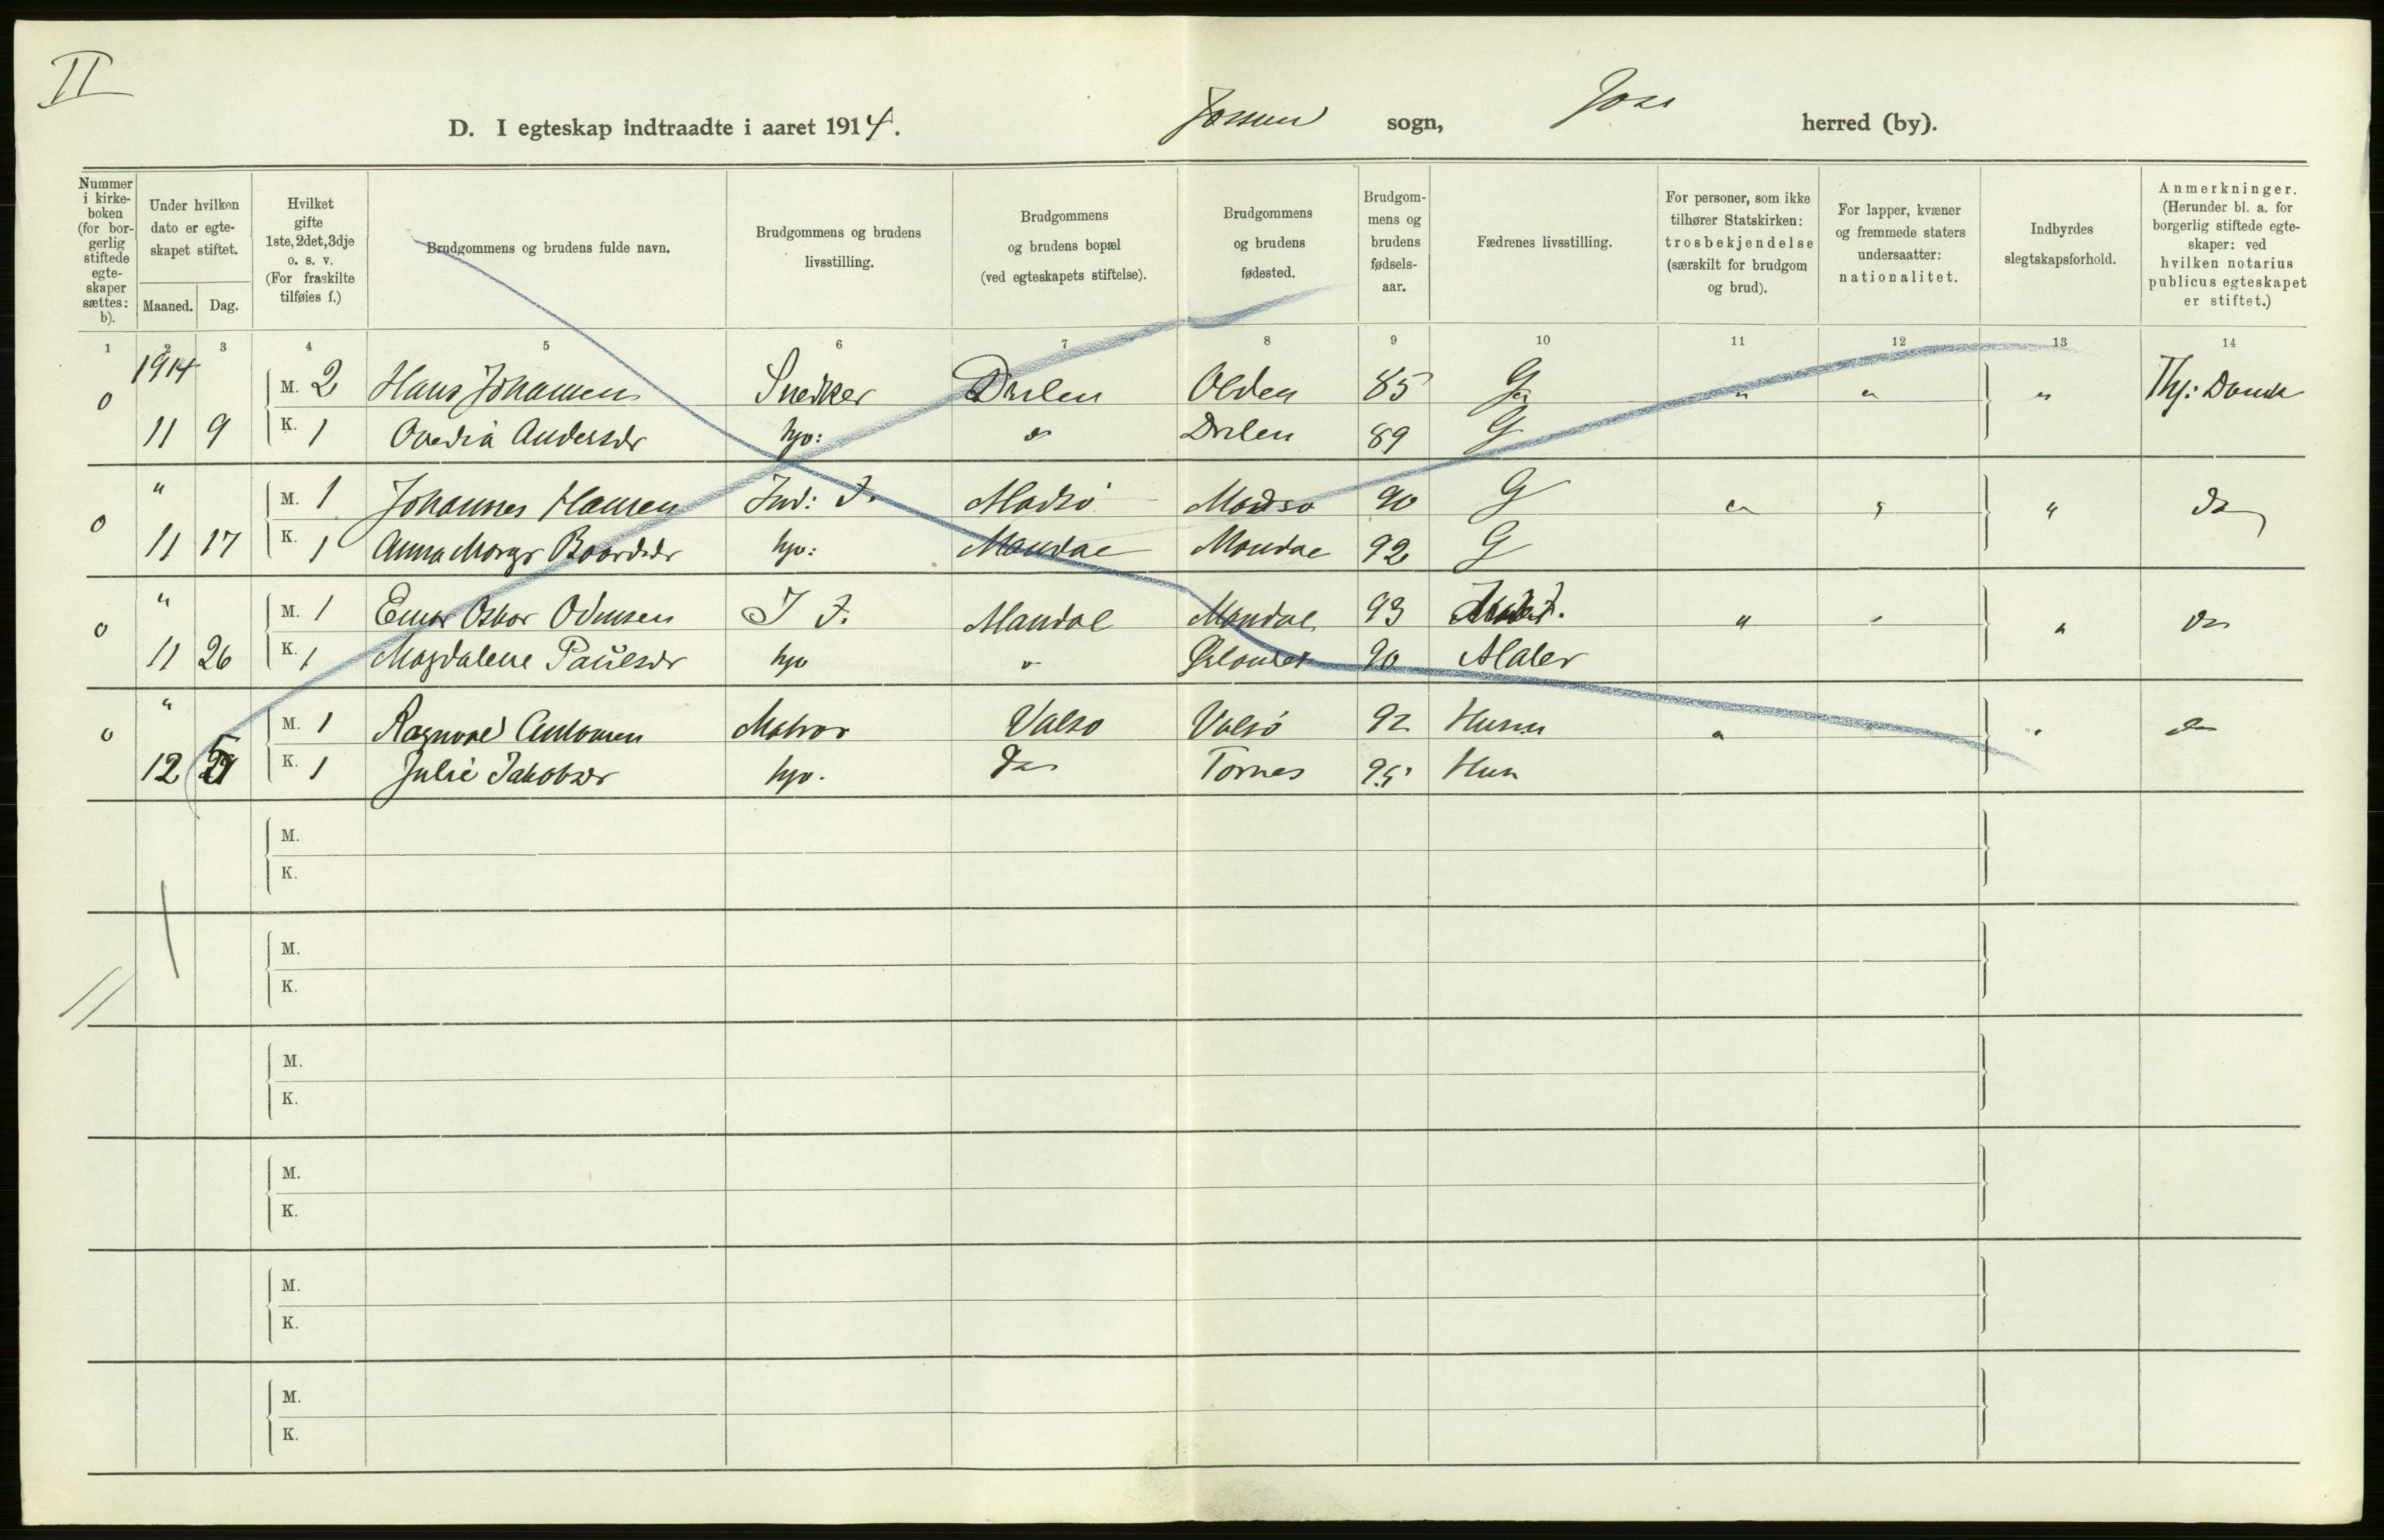 II
D. I egteskap indtraadte i aaret 1914. sogn, herred (by).
Nummer i kirkeboken (for borgerlig stiftede egteskaper sættes: b).
Under hvilken dato er egteskapet stiftet.
Maaned. Dag.
Hvilket gifte 1ste, 2det, 3dje o. s. v. (For fraskilte tilføies f.)
Brudgommens og brudens fulde navn.
Brudgommens og brudens livsstilling.
Brudgommens og brudens bopæl (ved egteskapets stiftelse).
Brudgommens og brudens fødested.
Brudgommens og brudens fødselsaar.
Fædrenes livsstilling.
For personer, som ikke tilhører Statskirken: trosbekjendelse (særskilt for brudgom og brud).
For lapper, kvæner og fremmede staters undersaatter: nationalitet.
Indbyrdes slegtskapsforhold.
Anmerkninger. (Herunder bl. a. for borgerlig stiftede egteskaper: ved hvilken notarius publicus egteskapet er stiftet.)
1 2 3 4 5 6 7 8 9 10 11 12 13 14
1914
0 M. 2 Hans Johansen Snedker Olden 85 G " " "
11 9 K. 1 Ovedia Andersdr hjv: " 89 G
"
0 M. 1 Johannes Hansen Ind: F. Madsö Madsø 90 G " " " Do
11 17 K. 1 Anna hjv: Mandal Mandal 92 G
"
0 M. 1 Einar Oskar Odinsen I F. Mandal Mandal 93 " " " Do
11 26 K. 1 Magdalene Paulsdr hjv " 90 Maler
"
0 M. 1 Ragnvald Antonsen Matros Valsø Valsö 92 Husm " " Do
12 K. 1 Julie Jakobsdr hjv. Do Tornes 95 Husm
M.
K.
M.
K.
M.
K.
M.
K.
M.
K.
M.
K.